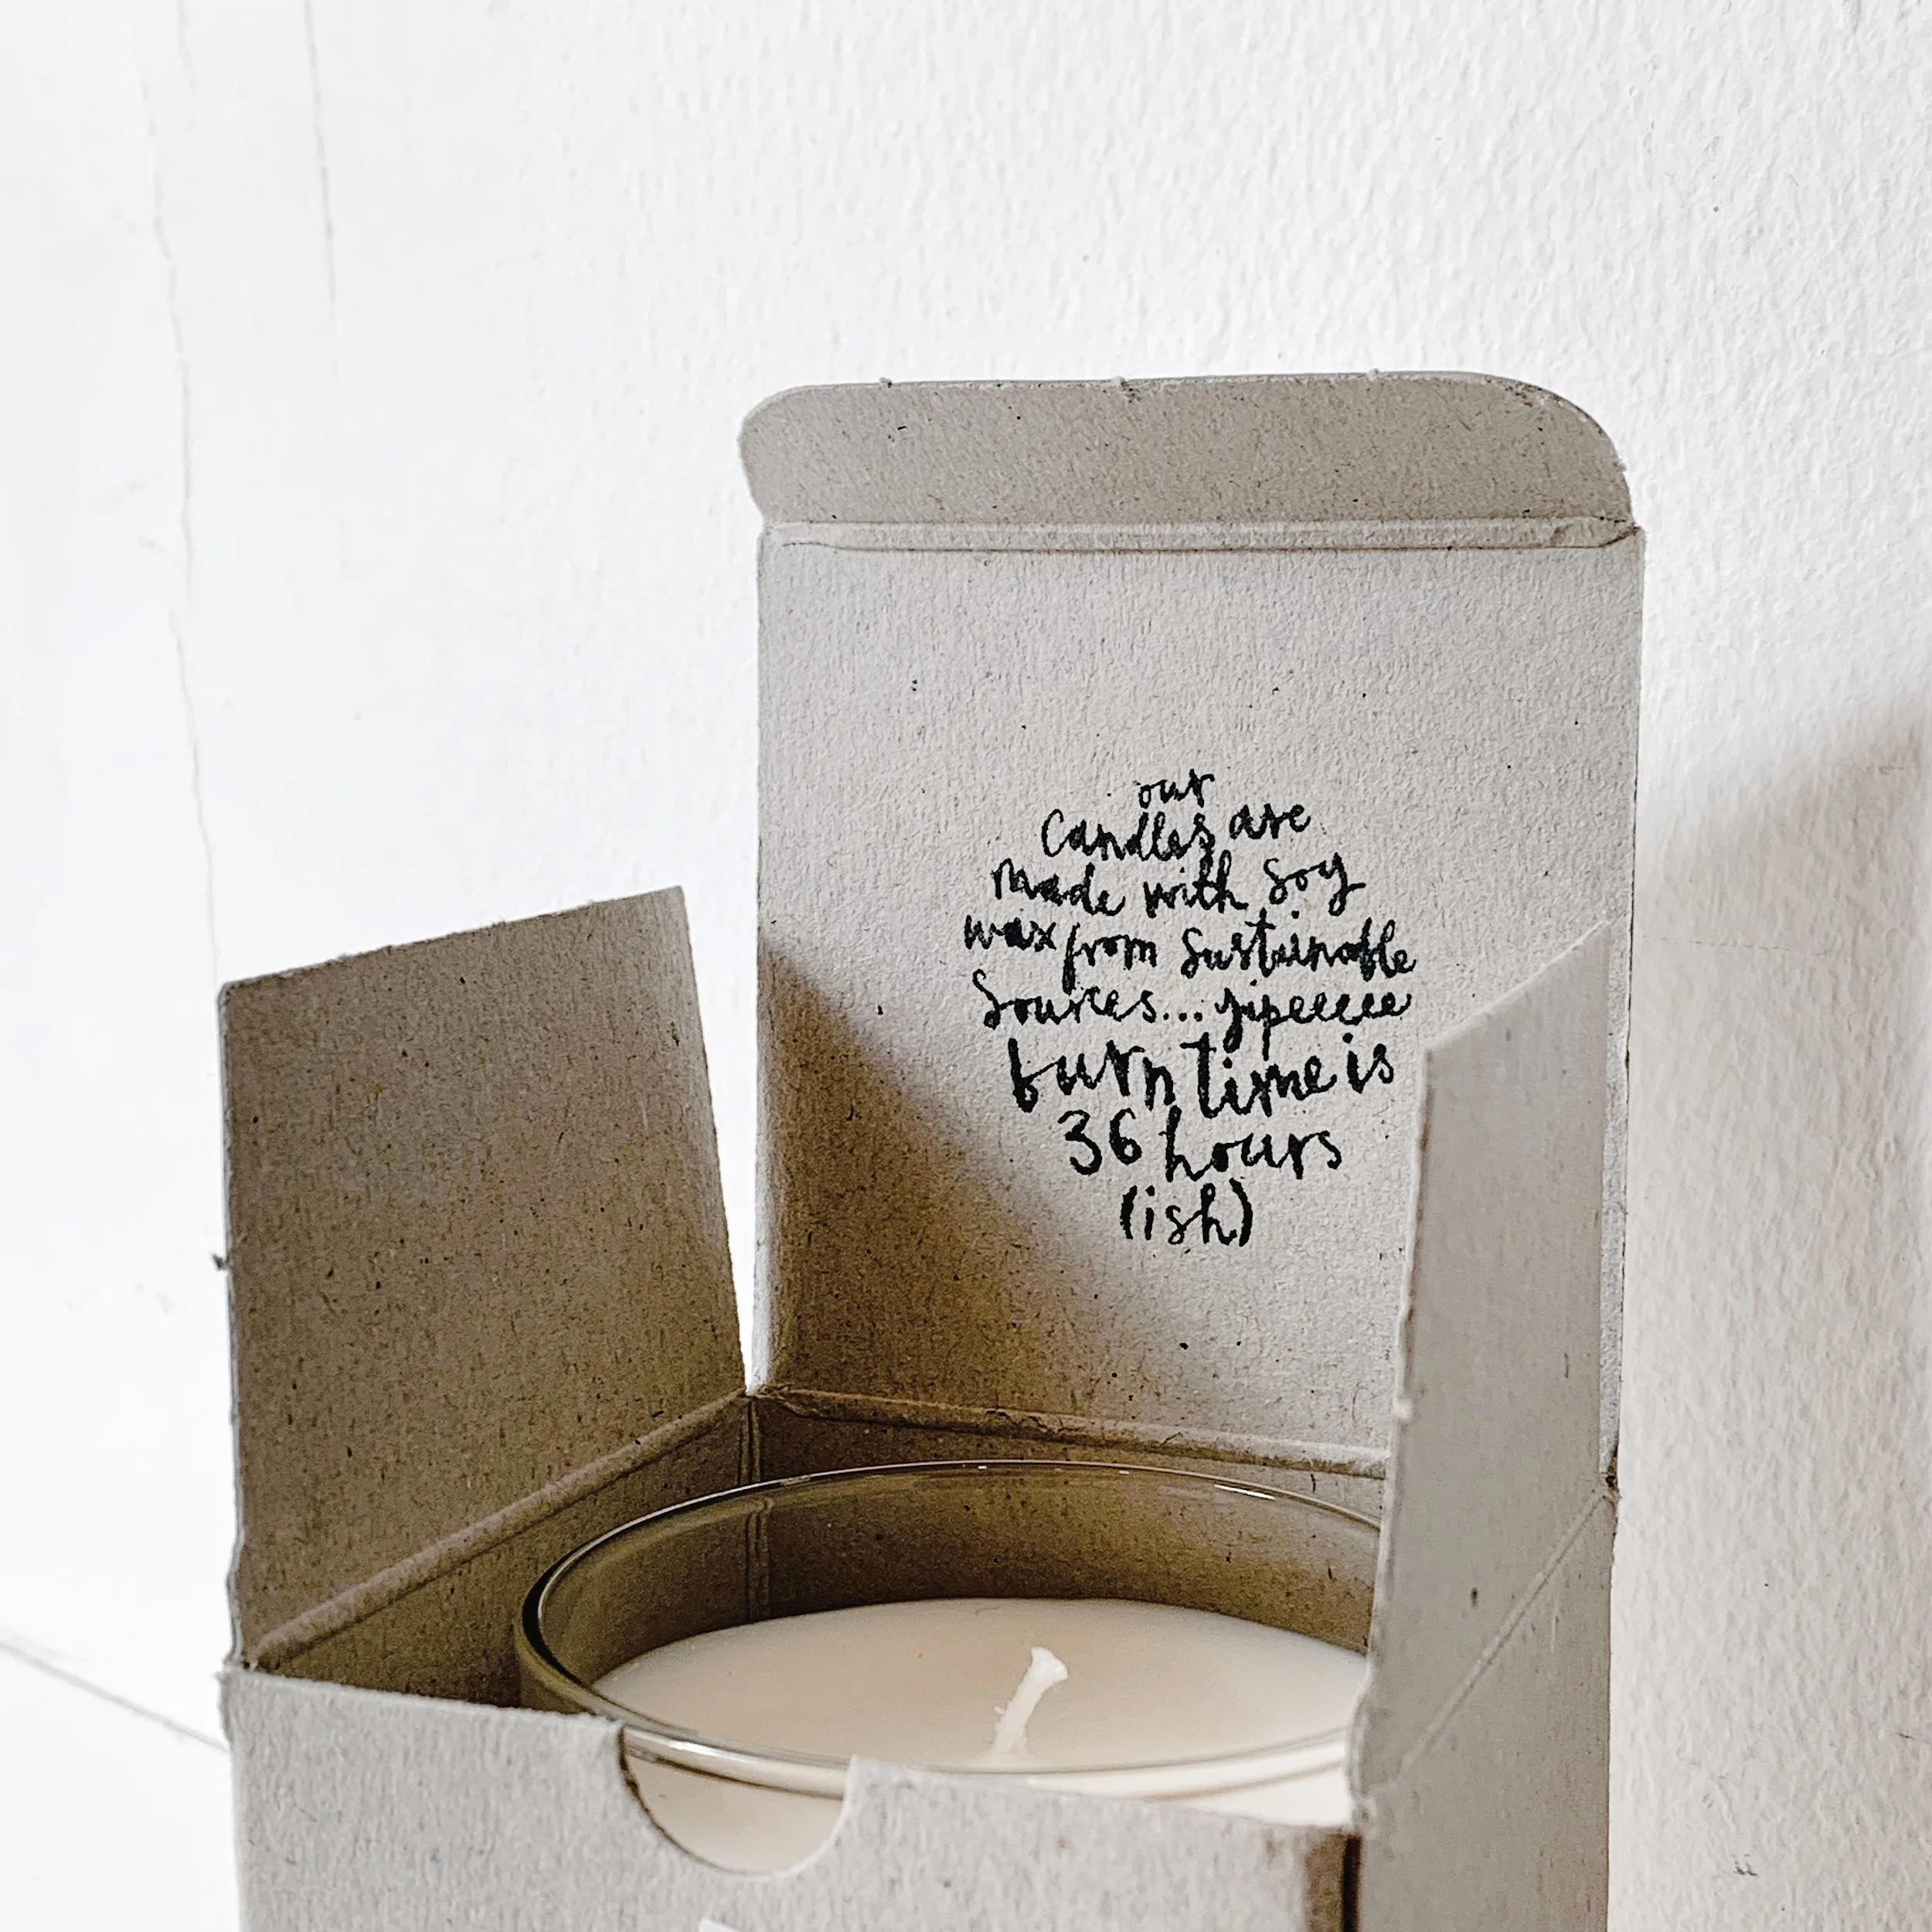 our
Candles are
made with soy
wax from sustainable
sources... yipeeeee
burn time is
36 hours
(ish)